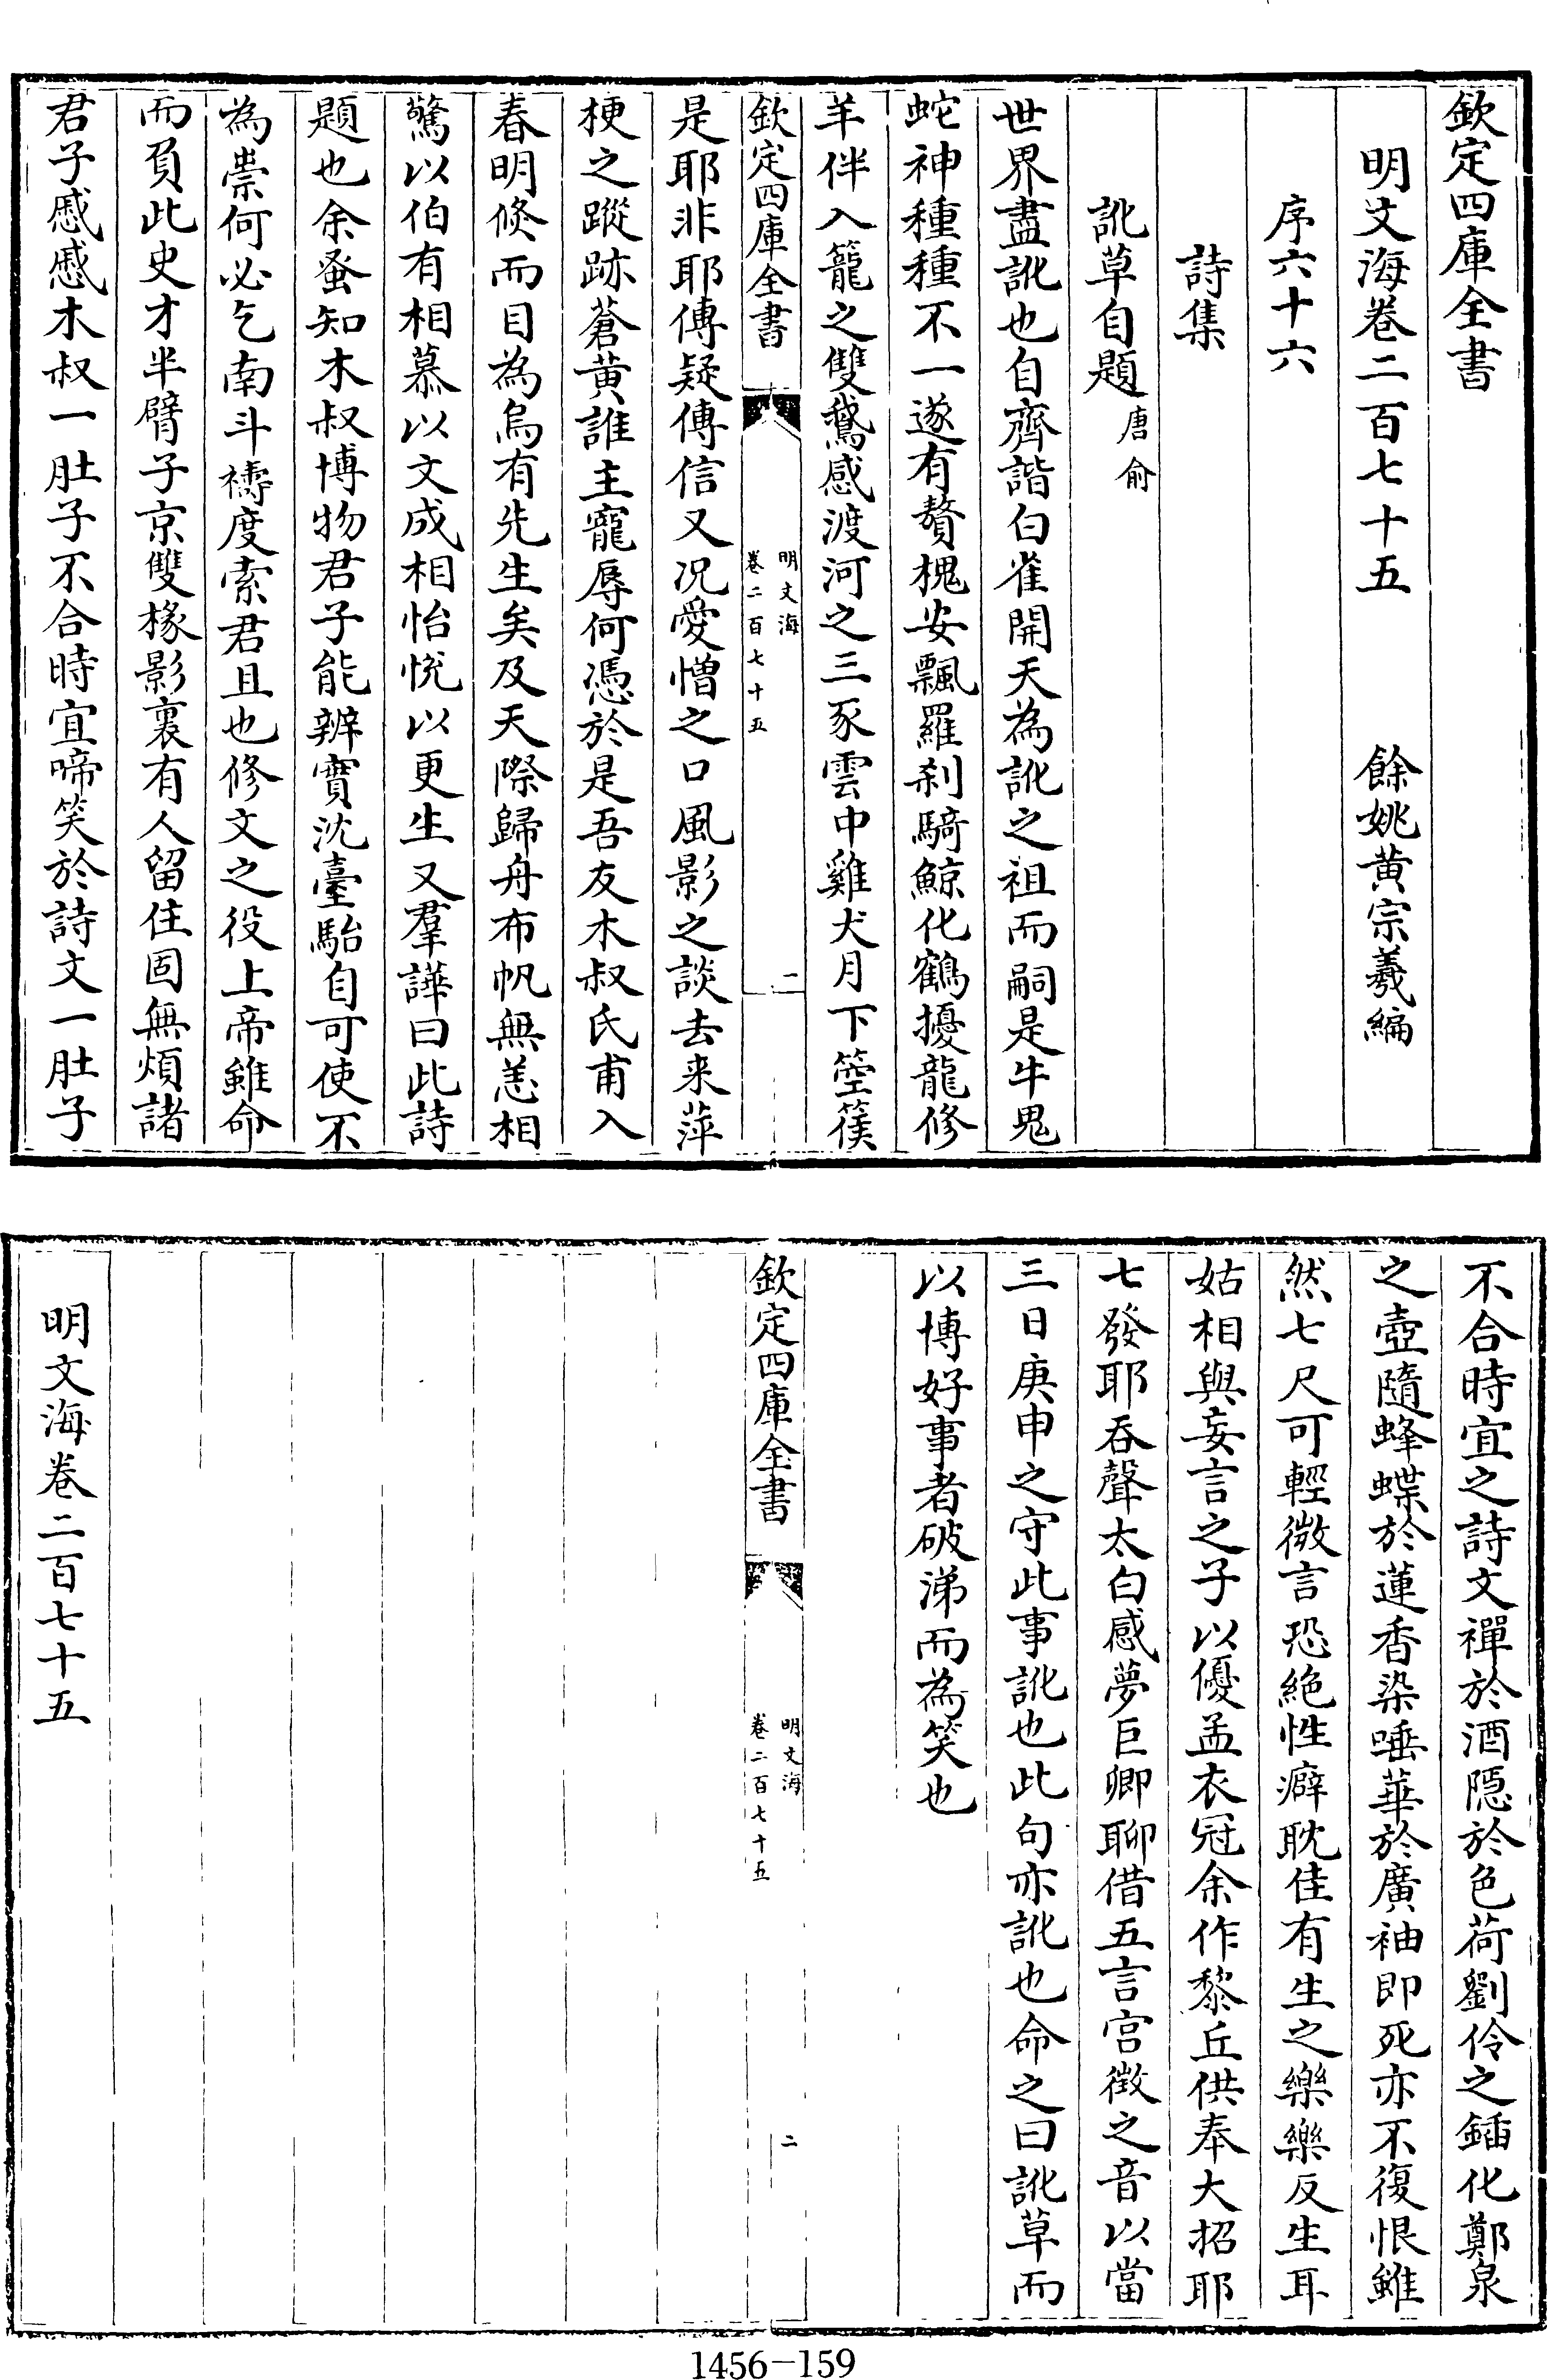 欽定四庫全書
明文海卷二百七十五　餘姚黃宗羲編
序六十六
詩集
訛草自題唐俞
世界盡訛也自齊諧白雀開天為訛之祖而嗣是牛鬼
蛇神種種不一遂有贅槐安飄羅刹騎鯨化鶴擾龍修
羊伴入籠之雙鵞感渡河之三豕雲中雞犬月下箜篌
欽定四庫全書
明文海
卷二百七十五
一
是耶非耶傳疑傳信又况愛憎之口風影之談去来萍
梗之蹤跡蒼黄誰主寵辱何憑於是吾友木叔氏甫入
春明倐而目為烏有先生矣及天際歸舟布帆無恙相
驚以伯有相慕以文成相怡悅以更生又羣譁曰此詩
題也余蚤知木叔博物君子能辨實沈臺駘自可使不
為祟何必乞南斗禱度索君且也修文之役上帝雖命
而負此史才半臂子京雙椽影裏有人留住固無煩諸
君子慼慼木叔一肚子不合時宜啼笑於詩文一肚子
不合時宜之詩文禪於酒隱於色荷劉伶之鍤化鄭泉
之壺隨蜂蝶於蓮香染唾華於廣袖即死亦不復恨雖
然七尺可輕微言恐絶性癖耽佳有生之樂樂反生耳
姑相與妄言之子以優孟衣冠余作黎丘供奉大招耶
七發耶吞聲太白感夢巨卿聊借五言宫徵之音以當
三日庚申之守此事訛也此句亦訛也命之曰訛草而
以博好事者破涕而為笑也
欽定四庫全書
明文海
卷二百七十五
二
明文海卷二百七十五
1456—159